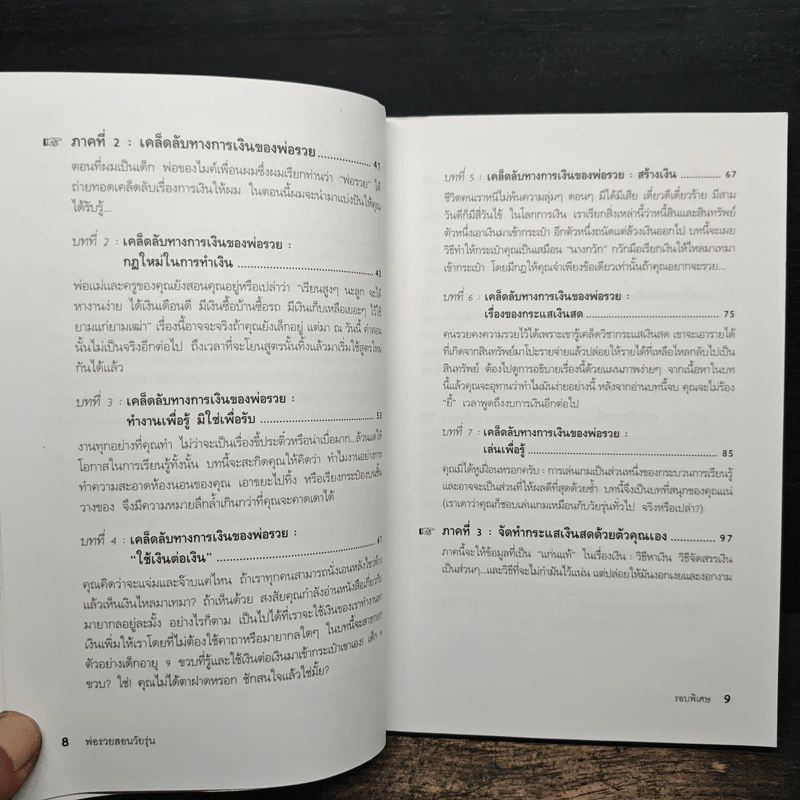 ☞ ภาคที่ 2 : เคล็ดลับทางการเงินของพ่อรวย.................41
ตอนที่ผมเป็นเด็ก พ่อของไมค์เพื่อนผมซึ่งผมเรียกท่านว่า "พ่อรวย" ได้
ถ่ายทอดเคล็ดลับเรื่องการเงินให้ผม ในตอนนี้ผมจะนำมาแบ่งปันให้คุณ
ได้รับรู้...
บทที่ 2 : เคล็ดลับทางการเงินของพ่อรวย :
กฎใหม่ในการทำเงิน ......................................43
พ่อแม่และครูของคุณยังสอนคุณอยู่หรือเปล่าว่า "เรียนสูงๆ นะลูก จะได้
หางานง่าย ได้เงินเดือนดี มีเงินซื้อบ้านซื้อรถ มีเงินเก็บเหลือเยอะๆ ไว้ใช้
ยามแก่ยามเฒ่า" เรื่องนี้อาจจะจริงถ้าคุณยังเล็กอยู่ แต่มา ณ วันนี้ คำสอน
นั้นไม่เป็นจริงอีกต่อไป ถึงเวลาที่จะโยนสูตรนั้นทิ้งแล้วมาเริ่มใช้สูตรใหม่
กันได้แล้ว
บทที่ 3 : เคล็ดลับทางการเงินของพ่อรวย :
ทำงานเพื่อรู้ มิใช่เพื่อรับ ................................53
งานทุกอย่างที่คุณทำ ไม่ว่าจะเป็นเรื่องขี้ประติ๋วหรือน่าเบื่อมาก..ล้วนแต่ให้
โอกาสในการเรียนรู้ทั้งนั้น บทนี้จะสะกิดคุณให้คิดว่า ทำไมงานอย่างการ
ทำความสะอาดห้องนอนของคุณ เอาขยะไปทิ้ง หรือเรียงกระป๋องบนชั้น
วางของ จึงมีความหมายลึกล้ำเกินกว่าที่คุณจะคาดเดาได้
บทที่ 4 : เคล็ดลับทางการเงินของพ่อรวย :
"ใช้เงินต่อเงิน" ...........................................61
คุณคิดว่าจะแจ่มและจ๊าบแค่ไหน ถ้าเราทุกคนสามารถนั่งเอนหลังไขว่ห้าง
แล้วเห็นเงินไหลมาเทมา? ถ้าเห็นด้วย สงสัยคุณกำลังอ่านหนังสือเกี่ยวกับ
มายากลอยู่ละมั้ง อย่างไรก็ตาม เป็นไปได้ที่เราจะใช้เงินของเราทำงานหา
เงินเพิ่มให้เราโดยที่ไม่ต้องใช้คาถาหรือมายากลใดๆ ในบทนี้จะสาธยาย
ตัวอย่างเด็กอายุ 9 ขวบที่รู้และใช้เงินต่อเงินมาเข้ากระเป๋าเขาเอง! เด็ก 9
ขวบ? ใช่! คุณไม่ได้ตาฝาดหรอก ชักสนใจแล้วใช่มั้ย?
8 พ่อรวยสอนวัยรุ่น
บทที่ 5 : เคล็ดลับทางการเงินของพ่อรวย : สร้างเงิน ............. 67
ชีวิตคนเราหนีไม่พ้นความลุ่มๆ ดอนๆ มีได้มีเสีย เดี๋ยวดีเดี๋ยวร้าย มีสาม
วันดีก็มีสี่วันไข้ ในโลกการเงิน เราเรียกสิ่งเหล่านี้ว่าหนี้สินและสินทรัพย์
ตัวหนึ่งเอาเงินมาเข้ากระเป๋า อีกตัวหนึ่งถนัดแต่ล้วงเงินออกไป บทนี้จะเผย
วิธีทำให้กระเป๋าคุณเป็นเสมือน "นางกวัก" กวักมือเรียกเงินให้ไหลมาเทมา
เข้ากระเป๋า โดยมีกฎให้คุณจำเพียงข้อเดียวเท่านั้นถ้าคุณอยากจะรวย...
บทที่ 6 : เคล็ดลับทางการเงินของพ่อรวย :
เรื่องของกระแสเงินสด ................................ 75
คนรวยคงความรวยไว้ได้เพราะเขารู้เคล็ดวิชากระแสเงินสด เขาจะเอารายได้
ที่เกิดจากสินทรัพย์มาโปะรายจ่ายแล้วปล่อยให้รายได้ที่เหลือไหลกลับไปเป็น
สินทรัพย์ ต้องไปดูการอธิบายเรื่องนี้ด้วยแผนภาพง่ายๆ จากเนื้อหาในบท
นี้แล้วคุณจะอุทานว่าทำไมมันง่ายอย่างนี้ หลังจากอ่านบทนี้จบ คุณจะไม่ร้อง
"ยี้" เวลาพูดถึงงบการเงินอีกต่อไป
บทที่ 7 : เคล็ดลับทางการเงินของพ่อรวย :
เล่นเพื่อรู้ ................................................ 85
คุณมิได้หูเฝื่อนหรอกครับ : การเล่นเกมเป็นส่วนหนึ่งของกระบวนการเรียนรู้
และอาจจะเป็นส่วนที่ให้ผลดีที่สุดด้วยซ้ำ บทนี้จึงเป็นบทที่สนุกของคุณแน่
(เราเดาว่าคุณก็ชอบเล่นเกมเหมือนกับวัยรุ่นทั่วไป จริงหรือเปล่า?)
☞ ภาคที่ 3 : จัดทำกระแสเงินสดด้วยตัวคุณเอง ............. 97
ภาคนี้จะให้ข้อมูลที่เป็น "แก่นแท้" ในเรื่องเงิน : วิธีหาเงิน วิธีจัดสรรเงิน
เป็นส่วนๆ...และวิธีที่จะไม่กำมันไว้แน่น แต่ปล่อยให้มันงอกเงยและงอกงาม
รอบพิเศษ 9